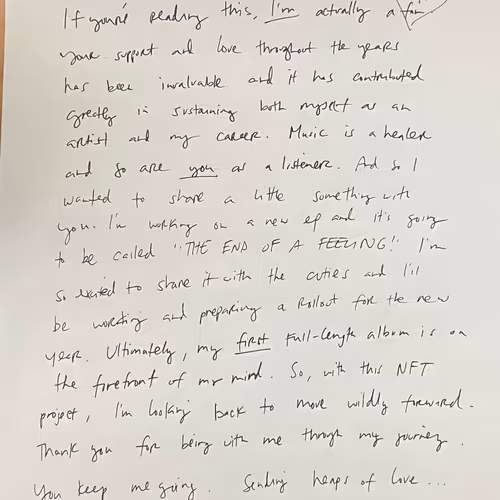 If you're reading this, I'm actually a fan
your support and love throughout the years
has been invaluable and it has contributed
greatly in sustaining both myself as an
artist and my career. Music is a healer
and so are you as a listener. And so I
wanted to share a little something with
you. I'm working on a new ep and it's going
to be called "THE END OF A FEELING!" I'm
so excited to share it with the cuties and I'll
be working and preparing a rollout for the new
year. Ultimately, my first full-length album is on
the forefront of my mind. So, with this NFT
project, I'm looking back to move wildly forward.
Thank you for being with me through my journey.
You keep me going. Sending heaps of love...